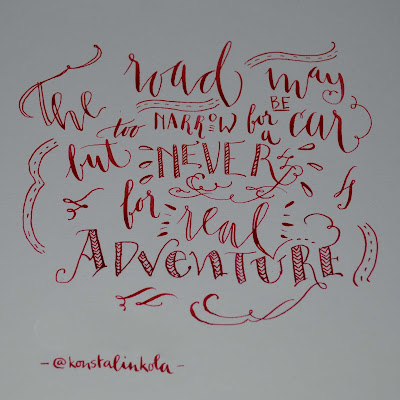 The road may
BE
too NARROW for a car
but NEVER
for real
ADVENTURE
- @konstalinkola -